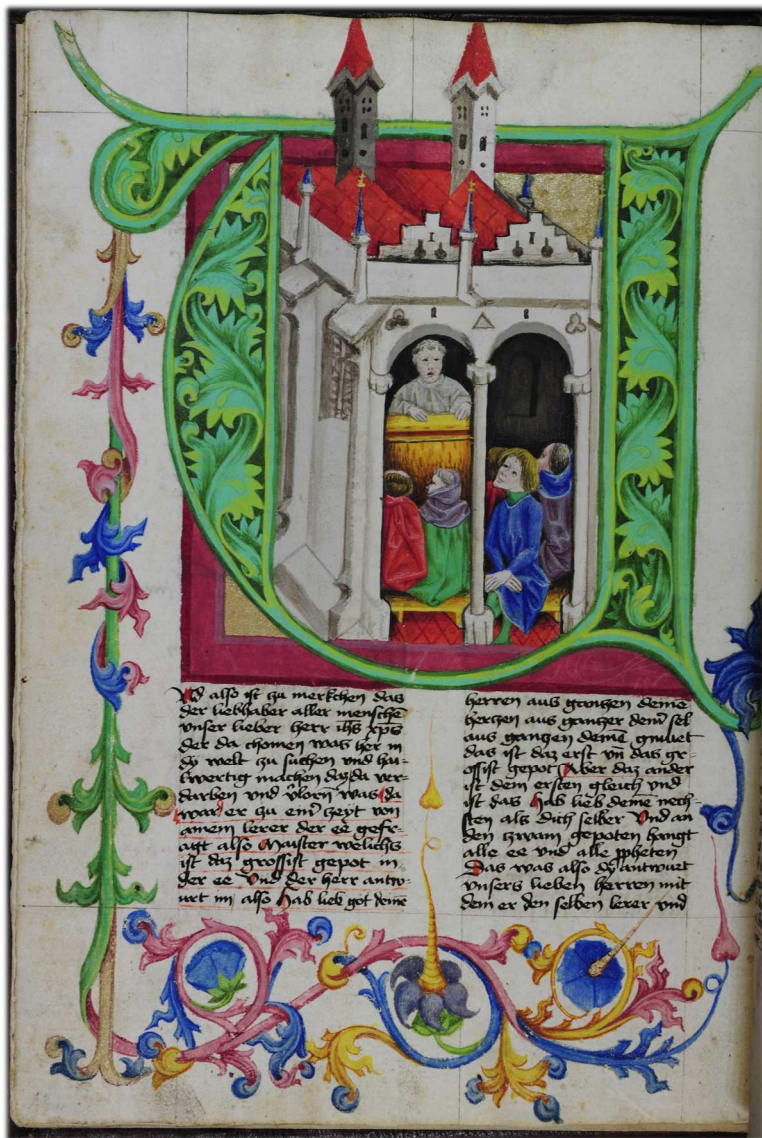 Vnd also ist zu merkchen das
der liebhaber aller mensche
vnser lieber herr ihs xps
der da chomen was her in
dy welt zu suchen vnd hail
wertig machen daz da ver-
darben vnd vlorn was da
ward er zu em zeyt von
ainem lerer der ee gefr-
agt also Maister welichs
ist daz grossist gepot in
der ee Vnd der herr antw-
urt im also Hab lieb got deine
herren aus ganczen deine
herczen aus ganczer dein sel
aus ganczen deine gmuet
das ist daz erst vn das gr-
ossist gepot Aber daz ander
ist dem ersten gleich vnd
ist das Hab lieb deine nech-
sten als dich selber Vnd an
den zwain gepoten hangt
alle ee vnd alle ppheten
Das was also dy antwuet
vnsers lieben herren mit
dem er den selben lerer vnd